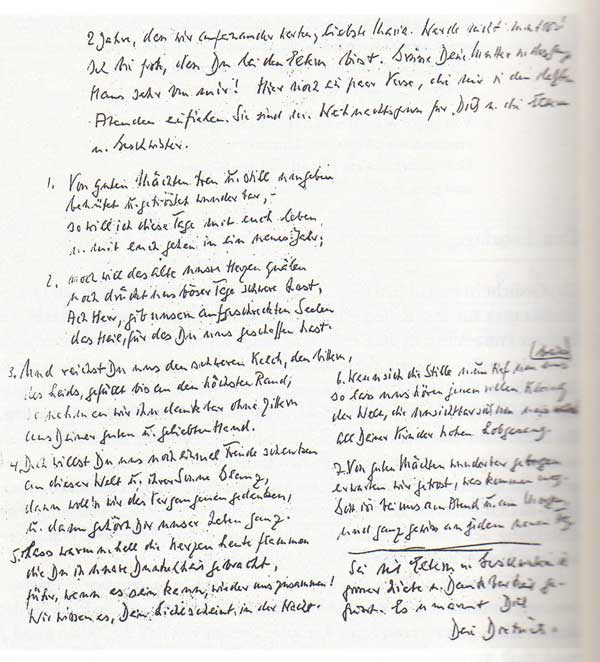 2 Jahre, dass wir aufeinander warten, liebste Maria. Werde nicht mutlos!
Ich bin froh, dass Du bei den Eltern bist. Grüsse Deine Mutter u. das ganze
Haus sehr von mir! Hier noch ein paar Verse, die mir in den letzten
Abenden einfielen. Sie sind der Weihnachtsgruss für Dich u. die Eltern
u. Geschwister.
1. Von guten Mächten treu u. still umgeben
behütet u. getröstet wunderbar, -
so will ich diese Tage mit euch leben
u. mit euch gehen in ein neues Jahr;
2. noch will das alte unsre Herzen quälen
noch drückt uns böser Tage schwere Last,
Ach Herr, gib unsern aufgeschreckten Seelen
das Heil, für das Du uns geschaffen hast.
3. Und reichst Du uns den schweren Kelch, den bittern,
des Leids, gefüllt bis an den höchsten Rand,
so nehmen wir ihn dankbar ohne Zittern
aus Deiner guten u. geliebten Hand.
4. Doch willst Du uns noch einmal Freude schenken
an dieser Welt u. ihrer Sonne Glanz,
dann woll'n wir des Vergangenen gedenken,
u. dann gehört Dir unser Leben ganz.
5. Lass warm u. hell die Kerzen heute flammen
die Du in unsre Dunkelheit gebracht,
führ, wenn es sein kann, wieder uns zusammen!
Wir wissen es, Dein Licht scheint in der Nacht.
6. Wenn sich die Stille nun tief um uns
so lass uns hören jenen vollen Klang
der Welt, die unsichtbar sich um uns
all Deiner Kinder hohen Lobgesang.
7. Von guten Mächten wunderbar geborgen
erwarten wir getrost, was kommen mag.
Gott ist bei uns am Abend u. am Morgen,
und ganz gewiss an jedem neuen Tag.
Sei mit Eltern u. Geschwistern in
grosser Liebe u. Dankbarkeit ge-
grüsst. Es umarmt Dich
Dein Dietrich.